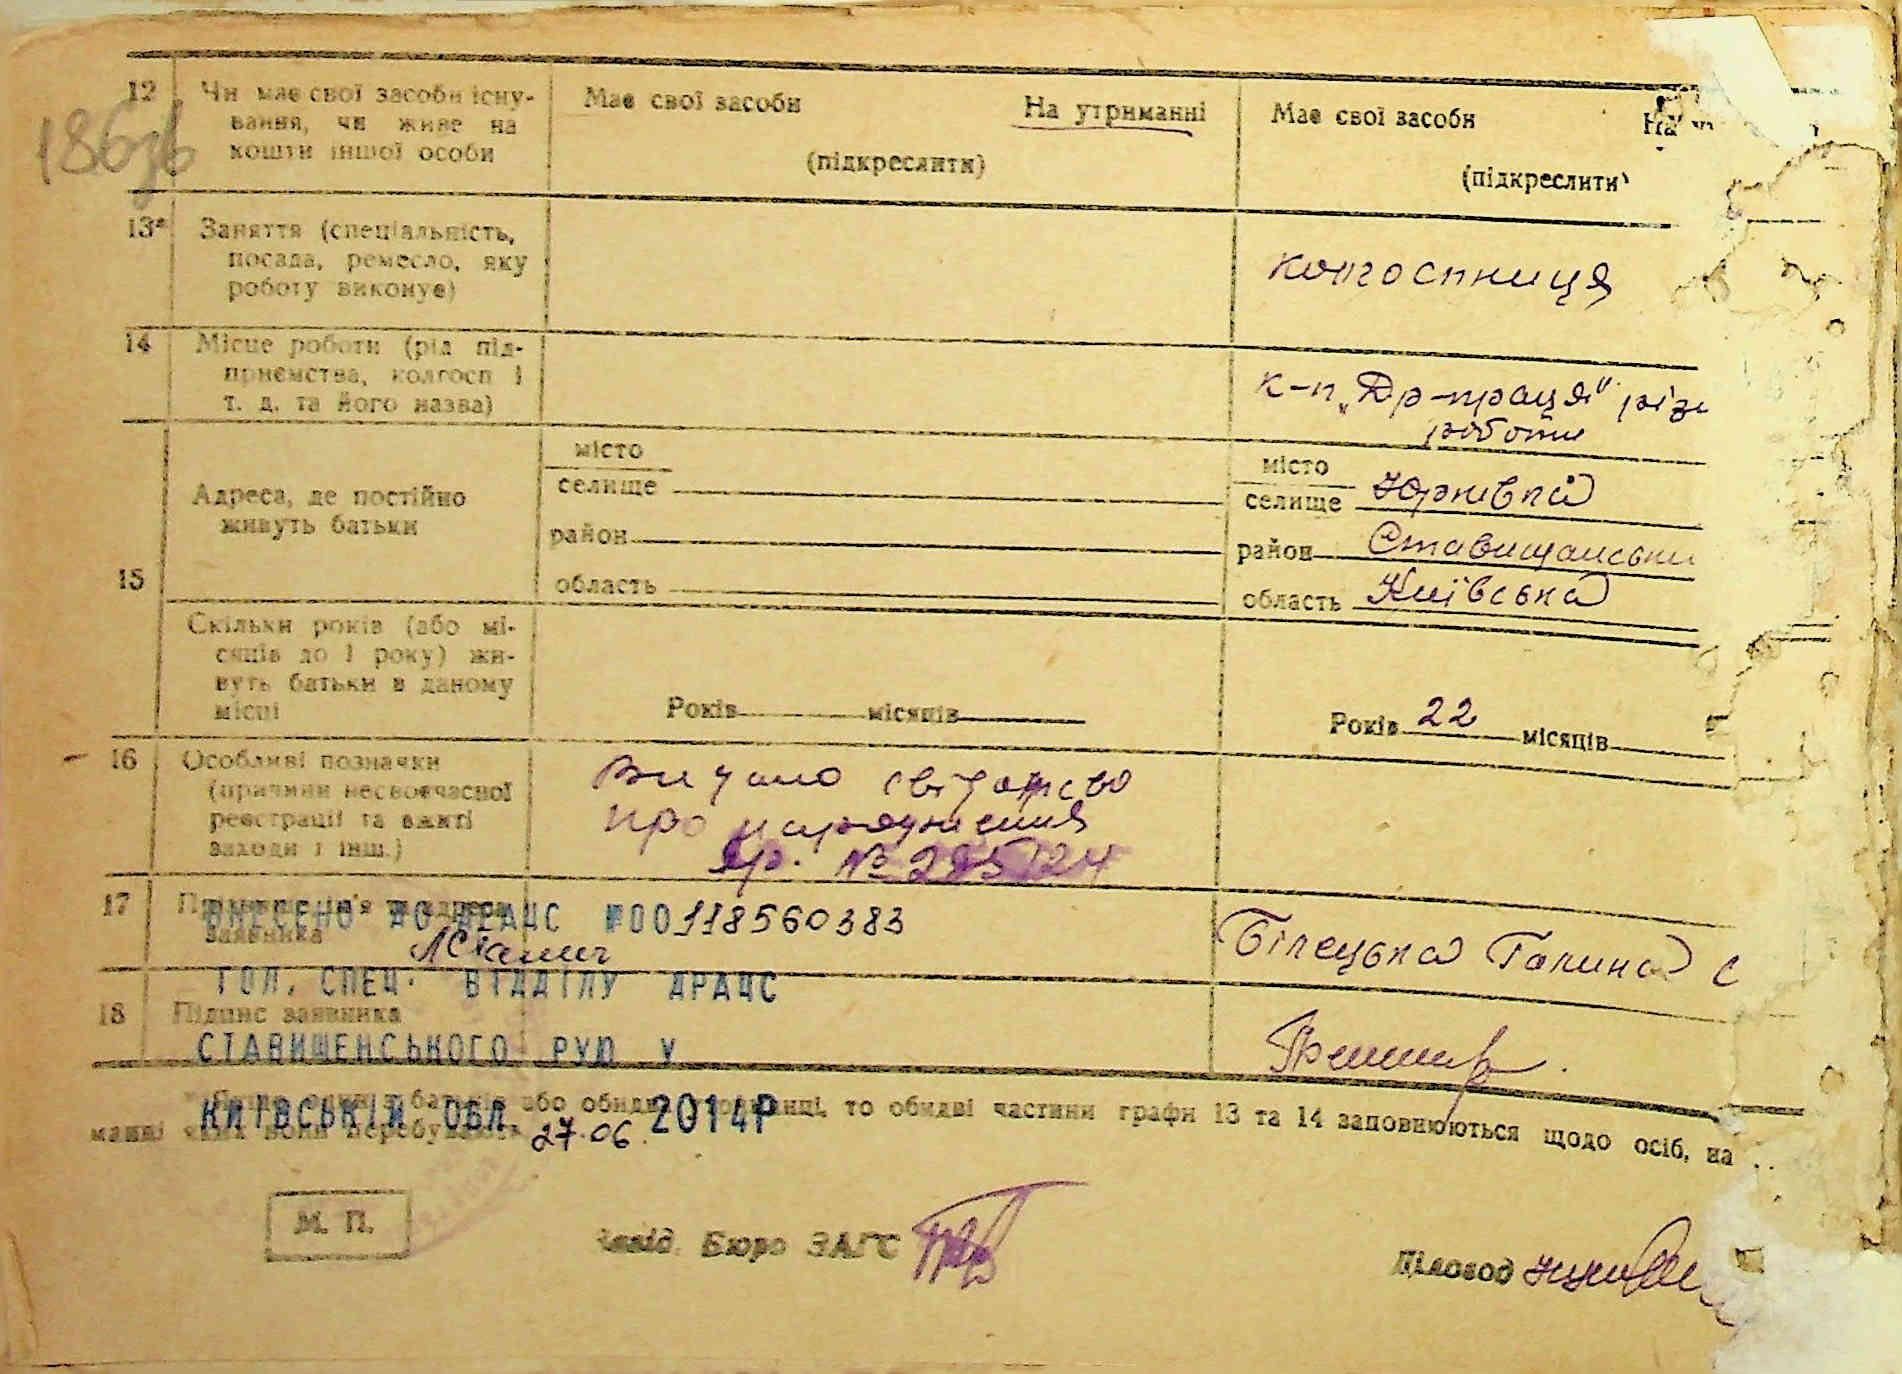 186зв
12 Чи має свої засоби існу-
вання, чи живе на
кошти іншої особи
Має свої засоби На утриманні
(підкреслити)
Має свої засоби На
(підкреслити)
13* Заняття (спеціальність,
посада, ремесло, яку
роботу виконує)
колгоспниця
14 Місце роботи (рід під-
приємства, колгосп і
т. д. та його назва)
к-п „Др-праця"
роботи
15 Адреса, де постійно
живуть батьки
місто
селище
район
область
місто
селище Юрківка
район Ставищанськи
область Київська
Скільки років (або мі-
сяців до 1 року) жи-
вуть батьки в даному
місці
Років місяців
Років 22 місяців
16 Особливі позначки
(причини несвоєчасної
реєстрації та вжиті
заходи і інш.)
Видано свідотство
про народження
№
17
заявника
ВНЕСЕНО ДО ДРАЦС №00118560383
Білецька Галина С
ГОЛ. СПЕЦ. ВІДДІЛУ ДРАЦС
18 Підпис заявника
СТАВИЩЕНСЬКОГО РУЮ У
або обидва то обидві частини графи 13 та 14 заповнюються щодо осіб, на
КИЇВСЬКІЙ ОБЛ. 27.06. 2014Р
манні вони перебувають
М. П.
Завід. Бюро ЗАГС
Діловод